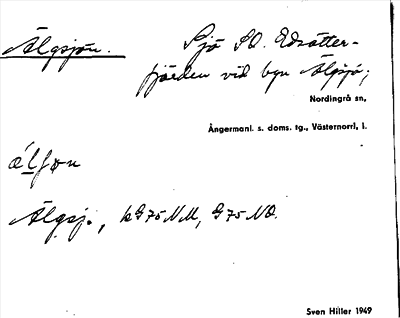 Älgsjön.
Sjö SO. Edsätter-
fjärden vid byn Älgsjö;
Nordingrå sn,
Ångermanl. s. doms. tg., Västernorrl. l.
Älgsj., k G75NM, G75NO.
Sven Hiller 1949